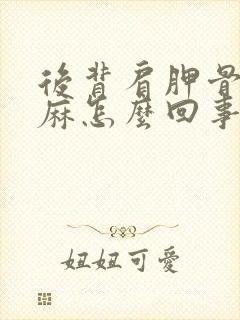 後背肩胛骨
麻怎麼回事
妞妞可愛